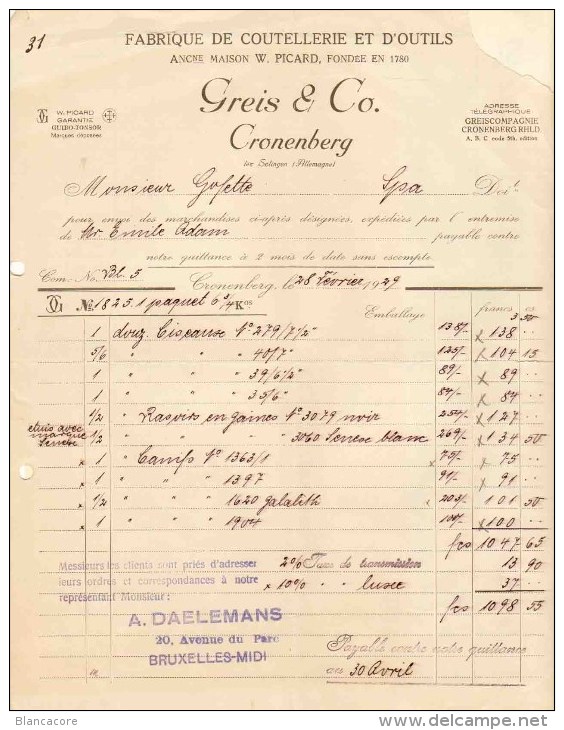 31
FABRIQUE DE COUTELLERIE ET D'OUTILS
ANCNE MAISON W. PICARD, FONDÉE EN 1780
Greis & Co.
Cronenberg
lez Solingen (Allemagne)
W. PICARD
GARANTIE
GUIDO-TONSOR
Marques déposées
ADRESSE
TÉLÉGRAPHIQUE
GREISCOMPAGNIE
CRONENBERG RHLD.
A. B. C code 5th. edition
Monsieur Gofette Spa Doit
pour envoi des marchandises ci-après désignées, expédiées par l'entremise
de Mr. Emile Adam payable contre
notre quittance à 2 mois de date sans escompte.
Com.-No. Bl. 5 Cronenberg, le 28 Février 1929
No. 1825. 1 paquet 6 3/4 Kos Emballage francs cs
3 50
1 douz. Ciseaux No 279/7½" 138/- 138 ..
5/6 " " " 40/7" 125/- 104 15
1 " " " 39/6½" 89/- 89 ..
1 " " " 35/6" 84/- 84 ..
1/2 " Rasoirs en gaines No 3079 noir 254/- 127 ..
étuis avec
marque
1/2 " " " 3060 blanc 269/- 134 50
1 " Canifs No 1363/1 75/- 75 ..
1 " " " 1397 91/- 91 ..
1/2 " " " 1620 galalith 203/- 101 50
1 " " " 1904 100/- 100 ..
fcs 1047 65
2% Taxe de transmission 13 90
10% " " luxe 37 ..
fcs 1098 55
Messieurs les clients sont priés d'adresser
leurs ordres et correspondances à notre
représentant Monsieur:
A. DAELEMANS
20, Avenue du Parc
BRUXELLES-MIDI
Payable contre notre quittance
au 30 Avril
Blancacore
delcampe.net